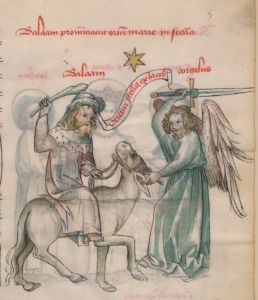 Balaam pronūciauit ortū marie in stella
Balaam
angelus
Orietur stella ex Jacob